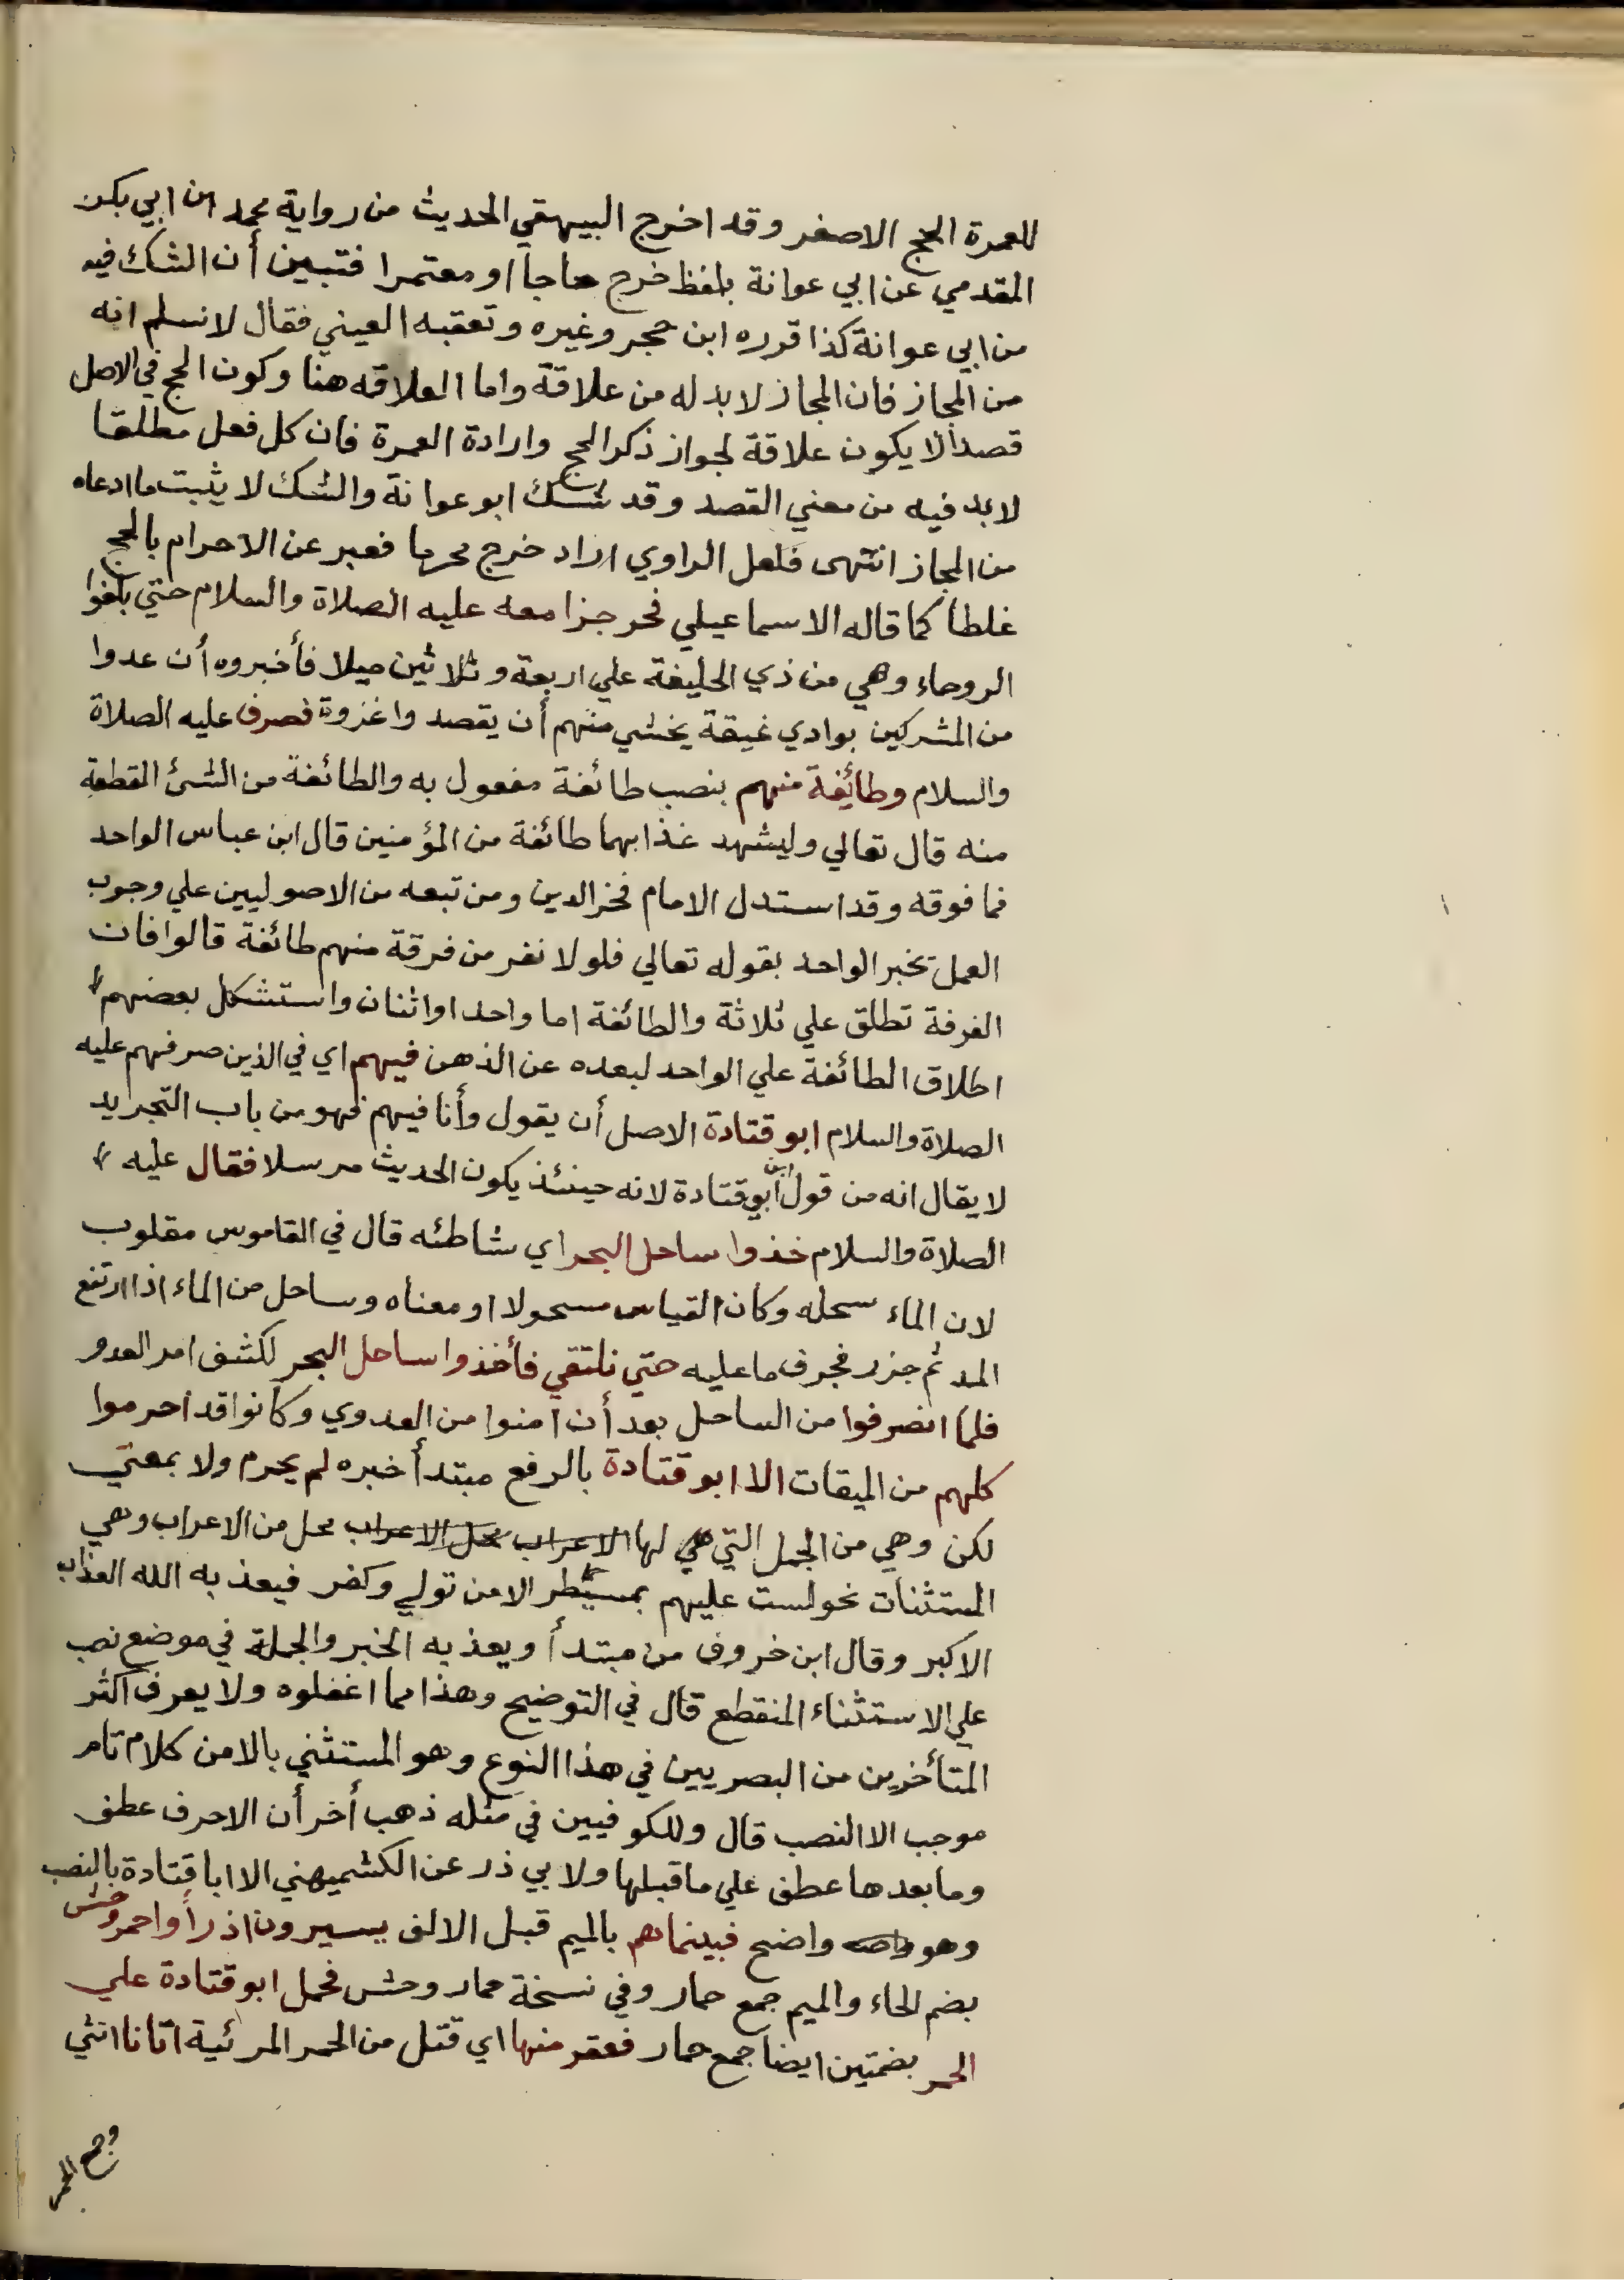 للعمرة الحج الاصغر وقد اخرج البيهقي الحديث من رواية محمد ابن ابي بكر
المقدمي عن ابي عوانة بلفظ خرج حاجا او معتمرا فتبين أن الشك فيه
من ابي عوانة كذا قرره ابن حجر وغيره وتعقبه العيني فقال لا نسلم انه
من المجاز فان المجاز لا بد له من علاقة واما العلاقه هنا وكون الحج في الاصل
قصدا لا يكون علاقة لجواز ذكر الحج وارادة العمرة فان كل فعل مطلقا
لا بد فيه من معني القصد وقد شك ابو عوانة والشك لا يثبت ما ادعاه
من المجاز انتهى فلعل الراوي اراد خرج محرما فعبر عن الاحرام بالحج
غلطا كما قاله الاسماعيلي فخرجزا معه عليه الصلاة والسلام حتي بلغوا
الروحاء وهي من ذي الحليفة علي اربعة وثلاثين ميلا فأخبروه أن عدوا
من المشركين بوادي غيقة يخشي منهم أن يقصد وا غزوة فصرف عليه الصلاة
والسلام وطائفة منهم بنصب طائفة مفعول به والطائفة من الشئ القطعة
منه قال تعالي وليشهد عذابهما طائفة من المؤمنين قال ابن عباس الواحد
فما فوقه وقد استدل الامام فخر الدين ومن تبعه من الاصوليين علي وجوب
العمل بخبر الواحد بقوله تعالي فلولا نفر من فرقة منهم طائفة قالوا فان
الفرقة تطلق علي ثلاثة والطائفة اما واحد او اثنان واستشكل بعضهم
اطلاق الطائفة علي الواحد لبعده عن الذهن فيهم اي في الذين صرفهم عليه
الصلاة والسلام ابو قتادة الاصل أن يقول وأنا فيهم فهو من باب التجريد
لا يقال انه من قول ابن أبي قتادة لانه حينئذ يكون الحديث مرسلا فقال عليه
الصلاة والسلام خذوا ساحل البحر اي شاطئه قال في القاموس مقلوب
لان الماء سحله وكان القياس مسحولا او معناه وساحل من الماء اذا ارتفع
المد ثم جزر فجرف ما عليه حتي نلتقي فأخذوا ساحل البحر لكشف امر العدو
فلما انصرفوا من الساحل بعد أن امنوا من العدوي وكانوا قد احرموا
كلهم من الميقات الا ابو قتادة بالرفع مبتدأ خبره لم يحرم ولا بمعني
لكن وهي من الجمل التي هي لها الاعراب محل الاعراب محل من الاعراب وهي
المستثنات نحو لست عليهم بمسيطر الا من تولي وكفر فيعذبه الله العذاب
الاكبر وقال ابن خروف من مبتدأ ويعذبه الخبر والجملة في موضع نصب
علي الاستثناء المنقطع قال في التوضيح وهذا مما اغفلوه ولا يعرف اكثر
المتأخرين من البصريين في هذا النوع وهو المستثني بالا من كلام تام
موجب الا النصب قال وللكوفيين في مثله ذهب أخر أن الا حرف عطف
وما بعدها عطف علي ما قبلها ولا بي ذر عن الكشميهني الا ابا قتادة بالنصب
وهو واضح فبينما هم بالميم قبل الالف يسيرون اذ رأوا حمر وحش
بضم الحاء والميم جمع حمار وفي نسخة حمار وحش فحمل ابو قتادة علي
الحمر بضمتين ايضا جمع حمار فعقر منها اي قتل من الحمر المرئية اتانا انثي
وجمع الحمر